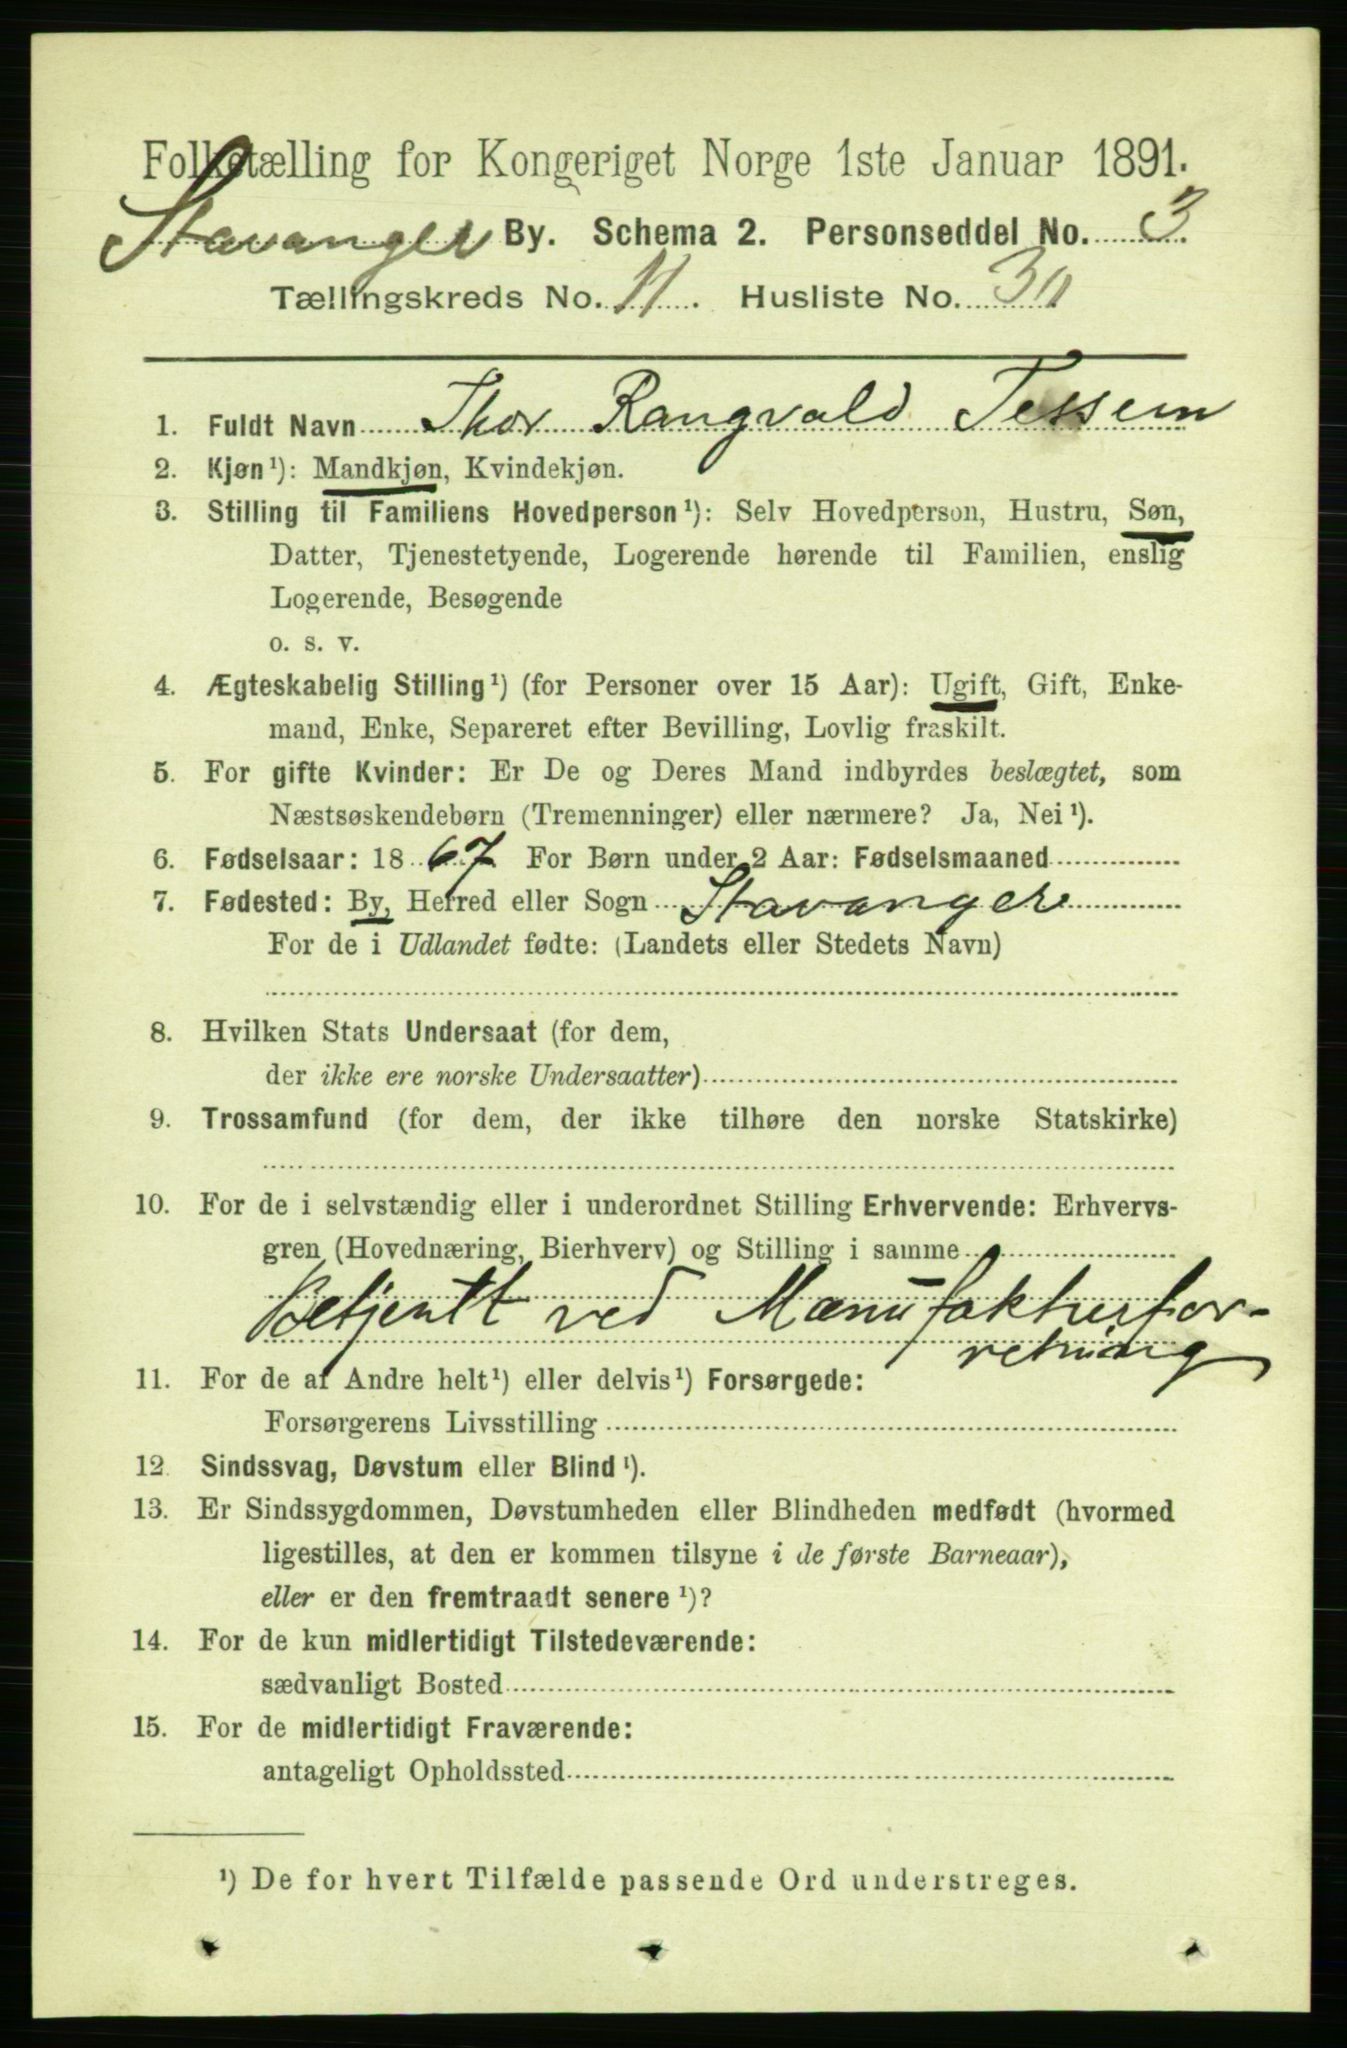 Folketælling for Kongeriget Norge 1ste Januar 1891.
Stavanger By. Schema 2. Personseddel No. 3
Tællingskreds No. 11. Husliste No.
1. Fuldt Navn Thor Rangvald Tessem
2. Kjøn¹): Mandkjøn, Kvindekjøn.
3. Stilling til Familiens Hovedperson¹): Selv Hovedperson, Hustru, Søn,
Datter, Tjenestetyende, Logerende hørende til Familien, enslig
Logerende, Besøgende
o. s. v.
4. Ægteskabelig Stilling¹) (for Personer over 15 Aar): Ugift, Gift, Enke-
mand, Enke, Separeret efter Bevilling, Lovlig fraskilt.
5. For gifte Kvinder: Er De og Deres Mand indbyrdes beslægtet, som
Næstsøskendebørn (Tremenninger) eller nærmere? Ja, Nei¹).
6. Fødselsaar: 1867 For Børn under 2 Aar: Fødselsmaaned
7. Fødested: By, Herred eller Sogn Stavanger
For de i Udlandet fødte: (Landets eller Stedets Navn)
8. Hvilken Stats Undersaat (for dem,
der ikke ere norske Undersaatter)
9. Trossamfund (for dem, der ikke tilhøre den norske Statskirke)
10. For de i selvstændig eller i underordnet Stilling Erhvervende: Erhvervs-
gren (Hovednæring, Bierhverv) og Stilling i samme
Betjentt ved Manufakturfor-
retning
11. For de af Andre helt¹) eller delvis¹) Forsørgede:
Forsørgerens Livsstilling
12. Sindssvag, Døvstum eller Blind¹).
13. Er Sindssygdommen, Døvstumheden eller Blindheden medfødt (hvormed
ligestilles, at den er kommen tilsyne i de første Barneaar),
eller er den fremtraadt senere¹)?
14. For de kun midlertidigt Tilstedeværende:
sædvanligt Bosted
15. For de midlertidigt Fraværende:
antageligt Opholdssted
¹) De for hvert Tilfælde passende Ord understreges.